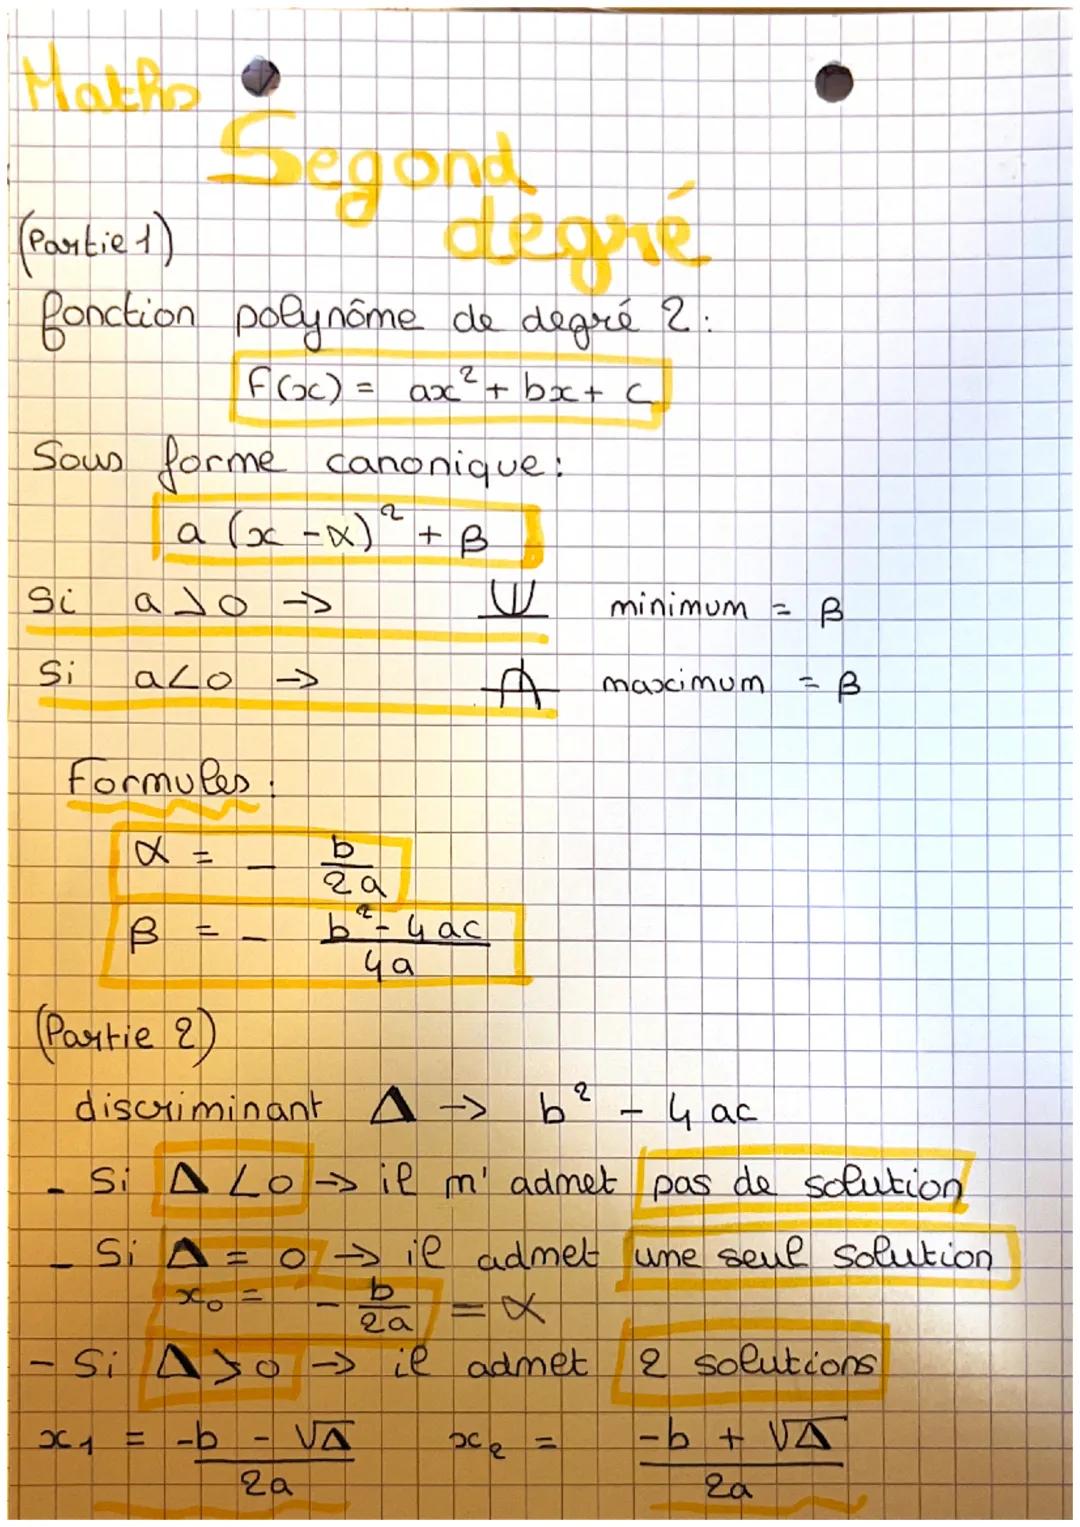 Maths
Segond
dégré
(Partie 1)
fonction polynôme de degré 2 :
F(x) = ax² + bx + c
Sous forme canonique :
a (x - α)² + β
Si a > 0 → minimum = β
Si a < 0 → maximum = β
Formules :
α = - b/2a
β = - b² - 4ac/4a
(Partie 2)
discriminant Δ → b² - 4 ac
- Si Δ < 0 → il m' admet pas de solution
- Si Δ = 0 → il admet une seul solution
x₀ = - b/2a = α
- Si Δ > 0 → il admet 2 solutions
x₁ = -b - √Δ/2a x₂ = -b + √Δ/2a